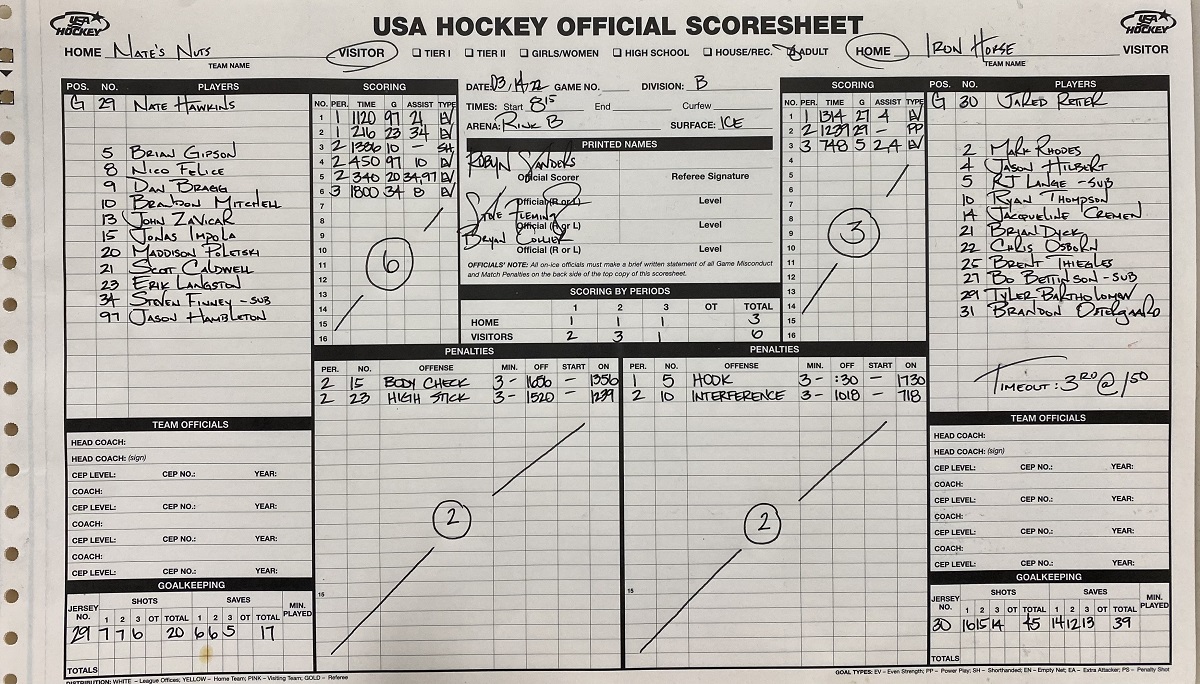 USA HOCKEY OFFICIAL SCORESHEET
USA HOCKEY
USA HOCKEY
HOME NATE'S NUTS VISITOR ☐ TIER I ☐ TIER II ☐ GIRLS/WOMEN ☐ HIGH SCHOOL ☐ HOUSE/REC. ☑ ADULT HOME IRON HORSE VISITOR
TEAM NAME
TEAM NAME
POS. NO. PLAYERS
G 29 NATE HAWKINS
5 BRIAN GIPSON
8 NICO FELICE
9 DAN BRAGG
10 BRANDON MITCHELL
13 JOHN ZAVICAR
15 JONAS IMPOLA
20 MADDISON POLETSKI
21 SCOTT CALDWELL
23 ERIK LANGSTON
34 STEVEN FINNEY -SUB
97 JASON HAMBLETON
SCORING
NO. PER. TIME G ASSIST TYPE
1 1 1120 97 21 EV
2 1 216 23 34 EV
3 2 1336 10 - SH
4 2 450 97 10 EV
5 2 340 20 34,97 EV
6 3 1800 34 8 EV
7
8
9
10
11
12
13
14
15
16
6
DATE: 03,14,22 GAME NO. DIVISION: B
TIMES: Start 8 15 End Curfew
ARENA: RINK B SURFACE: ICE
PRINTED NAMES
ROBYN SANDERS
Official Scorer Referee Signature
Official (R or L) Level
STEVE FLEMING
Official (R or L) Level
BRYAN COLLIER
Official (R or L) Level
OFFICIALS' NOTE: All on-ice officials must make a brief written statement of all Game Misconduct
and Match Penalties on the back side of the top copy of this scoresheet.
SCORING BY PERIODS
1 2 3 OT TOTAL
HOME 1 1 1 3
VISITORS 2 3 1 6
SCORING
NO. PER. TIME G ASSIST TYPE
1 1 1314 27 4 EV
2 2 1239 29 - PP
3 3 748 5 2,4 EV
4
5
6
7
8
9
10
11
12
13
14
15
16
3
POS. NO. PLAYERS
G 30 JARED REITER
2 MARK RHODES
4 JASON HILBERT
5 RJ LANGE -SUB
10 RYAN THOMPSON
14 JACQUELINE CREMEN
21 BRIAN DYCK
22 CHRIS OSBORN
25 BRENT THIEGLES
27 BO BETTINSON -SUB
29 TYLER BARTHOLOMEW
31 BRANDON OSTERGAARD
TIMEOUT: 3RD @ 150
PENALTIES
PER. NO. OFFENSE MIN. OFF START ON
2 15 BODY CHECK 3- 1656 - 1356
2 23 HIGH STICK 3- 1520 - 1239
15
2
PENALTIES
PER. NO. OFFENSE MIN. OFF START ON
1 5 HOOK 3- :30 - 1730
2 10 INTERFERENCE 3- 1018 - 718
15
2
TEAM OFFICIALS
HEAD COACH:
HEAD COACH: (sign)
CEP LEVEL: CEP NO.: YEAR:
COACH:
CEP LEVEL: CEP NO.: YEAR:
COACH:
CEP LEVEL: CEP NO.: YEAR:
COACH:
CEP LEVEL: CEP NO.: YEAR:
GOALKEEPING
JERSEY NO. SHOTS SAVES MIN. PLAYED
1 2 3 OT TOTAL 1 2 3 OT TOTAL
29 7 7 6 20 6 6 5 17
TOTALS
TEAM OFFICIALS
HEAD COACH:
HEAD COACH: (sign)
CEP LEVEL: CEP NO.: YEAR:
COACH:
CEP LEVEL: CEP NO.: YEAR:
COACH:
CEP LEVEL: CEP NO.: YEAR:
COACH:
CEP LEVEL: CEP NO.: YEAR:
GOALKEEPING
JERSEY NO. SHOTS SAVES MIN. PLAYED
1 2 3 OT TOTAL 1 2 3 OT TOTAL
30 16 15 14 45 14 12 13 39
TOTALS
DISTRIBUTION: WHITE – League Offices; YELLOW – Home Team; PINK – Visiting Team; GOLD – Referee
GOAL TYPES: EV – Even Strength; PP – Power Play; SH – Shorthanded; EN – Empty Net; EA – Extra Attacker; PS – Penalty Shot